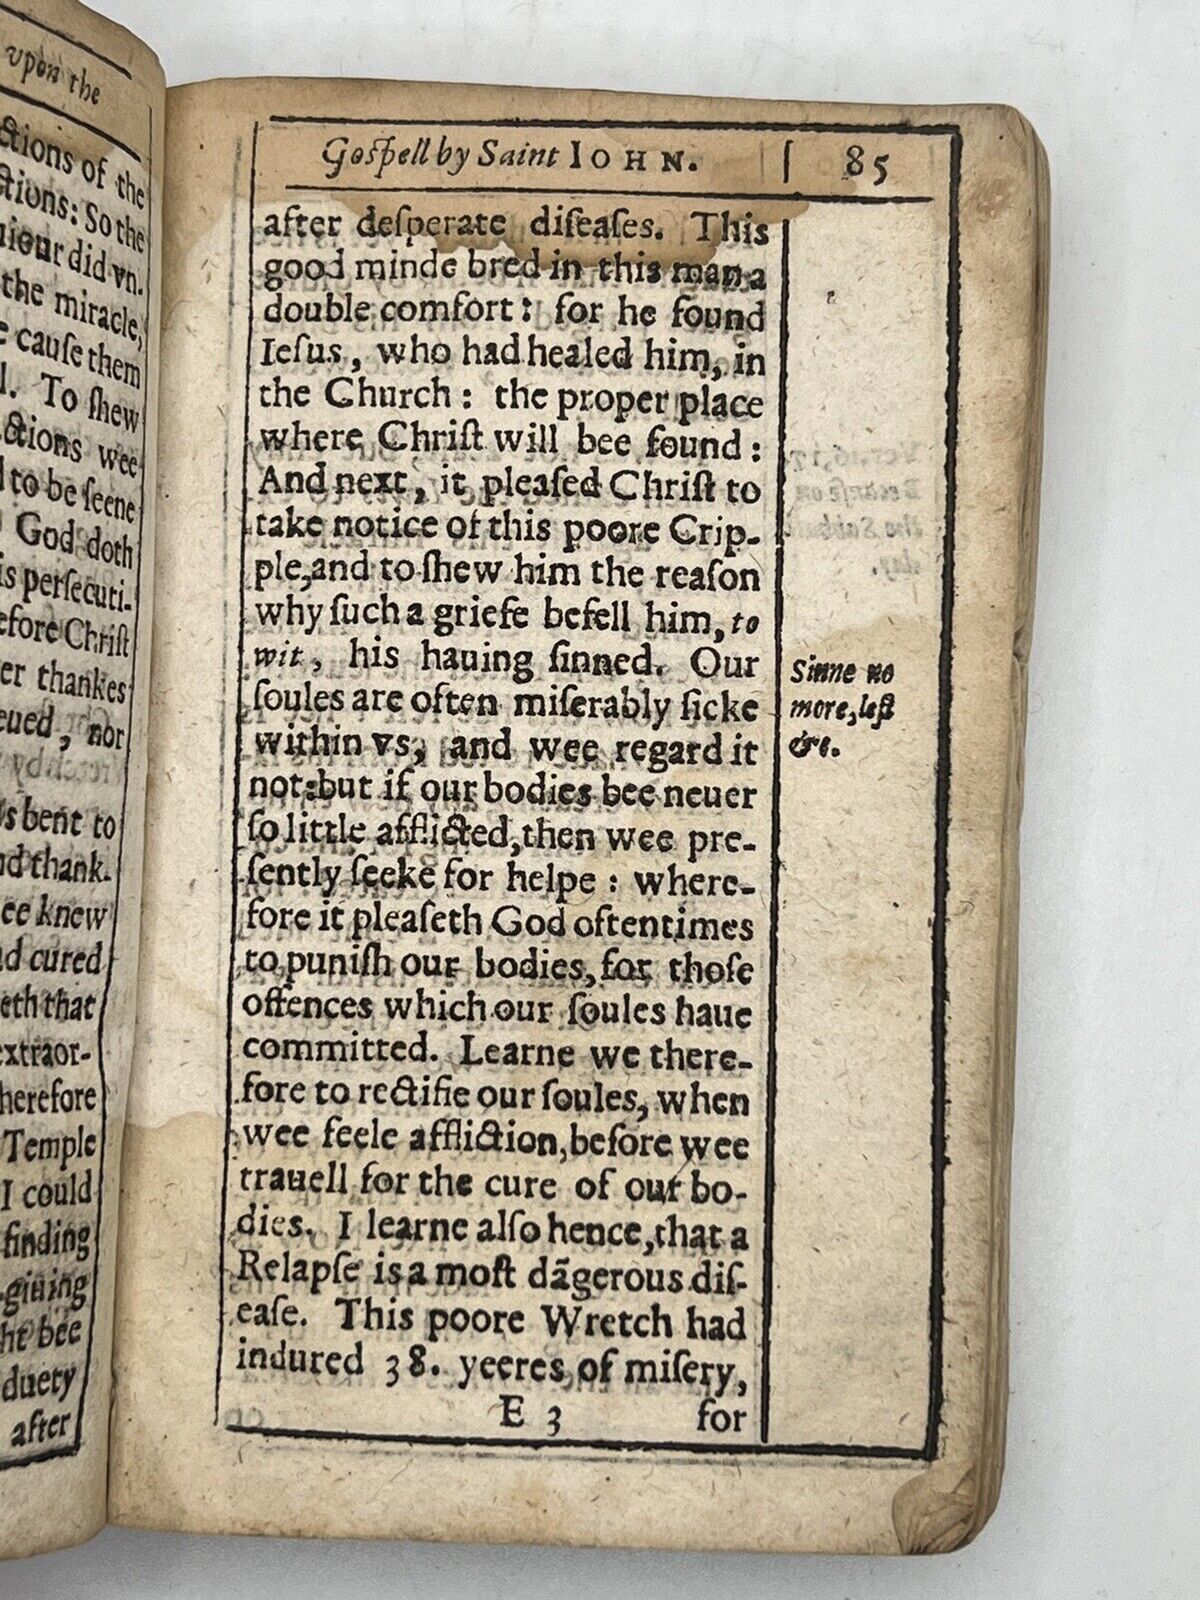 vpon the
ctions of the
ctions: So the
uiour did vn-
the miracle,
cauſe them
To ſhew
ctions wee
to be ſeene
God doth
is perſecuti-
efore Chriſt
er thankes
eued, nor
s bent to
nd thank-
ee knew
nd cured
eth that
extraor-
herefore
Temple
I could
finding
giuing
ht bee
duety
after
Goſpell by Saint IOHN. 85
after deſperate diſeaſes. This
good minde bred in this man a
double comfort: for he found
Ieſus, who had healed him, in
the Church: the proper place
where Chriſt will bee found:
And next, it pleaſed Chriſt to
take notice of this poore Crip-
ple, and to ſhew him the reaſon
why ſuch a griefe befell him, to
wit, his hauing ſinned. Our
ſoules are often miſerably ſicke
within vs, and wee regard it
not: but if our bodies bee neuer
ſo little afflicted, then wee pre-
ſently ſeeke for helpe: where-
fore it pleaſeth God oftentimes
to puniſh our bodies, for thoſe
offences which our ſoules haue
committed. Learne we there-
fore to rectifie our ſoules, when
wee feele affliction, before wee
trauell for the cure of our bo-
dies. I learne alſo hence, that a
Relapſe is a moſt dãgerous diſ-
eaſe. This poore Wretch had
indured 38. yeeres of miſery,
E 3 for
Sinne no
more, leſt
&c.